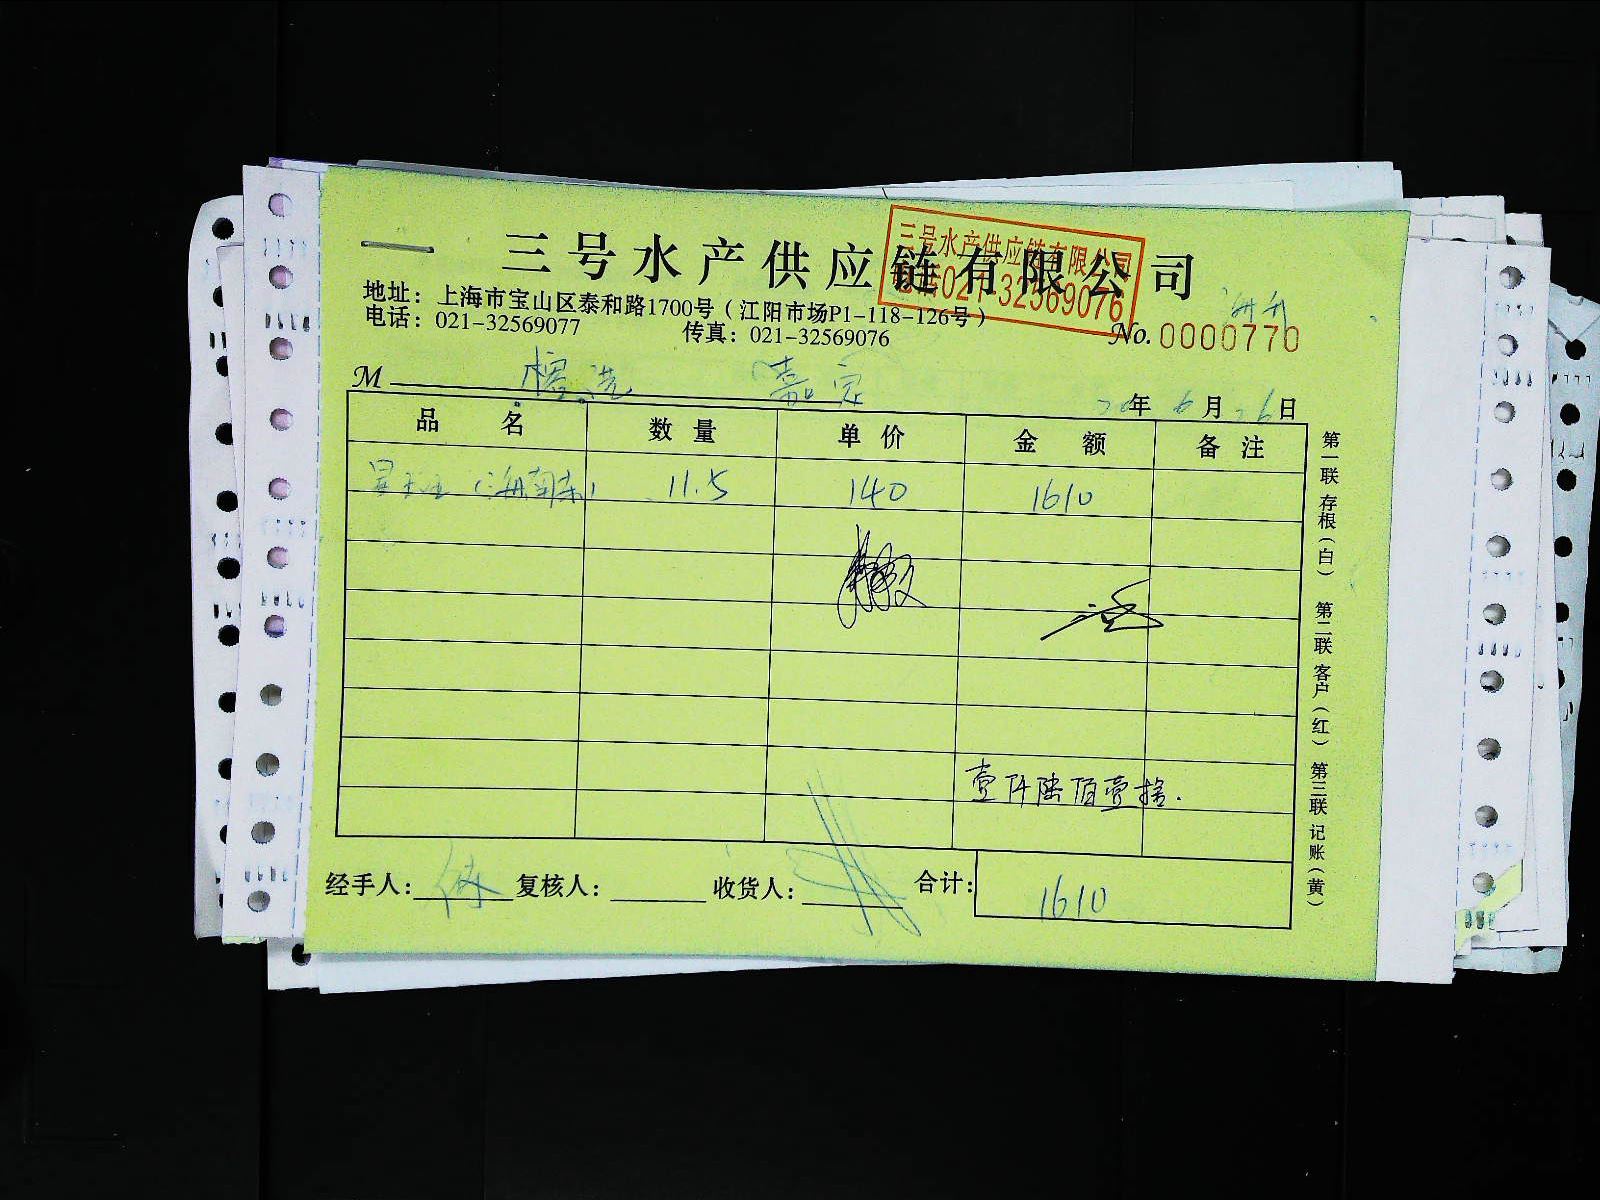 三号水产供应链有限公司
三号水产供应链有限公司
电话021-32569076
地址：上海市宝山区泰和路1700号（江阳市场P1-118-126号）
电话：021-32569077 传真：021-32569076
No. 0000770
M 嘉定
20年6月26日
品名 数量 单价 金额 备注
11.5 140 1610
壹仟陆佰壹拾.
经手人： 复核人： 收货人： 合计：1610
第一联 存根（白） 第二联 客户（红） 第三联 记账（黄）